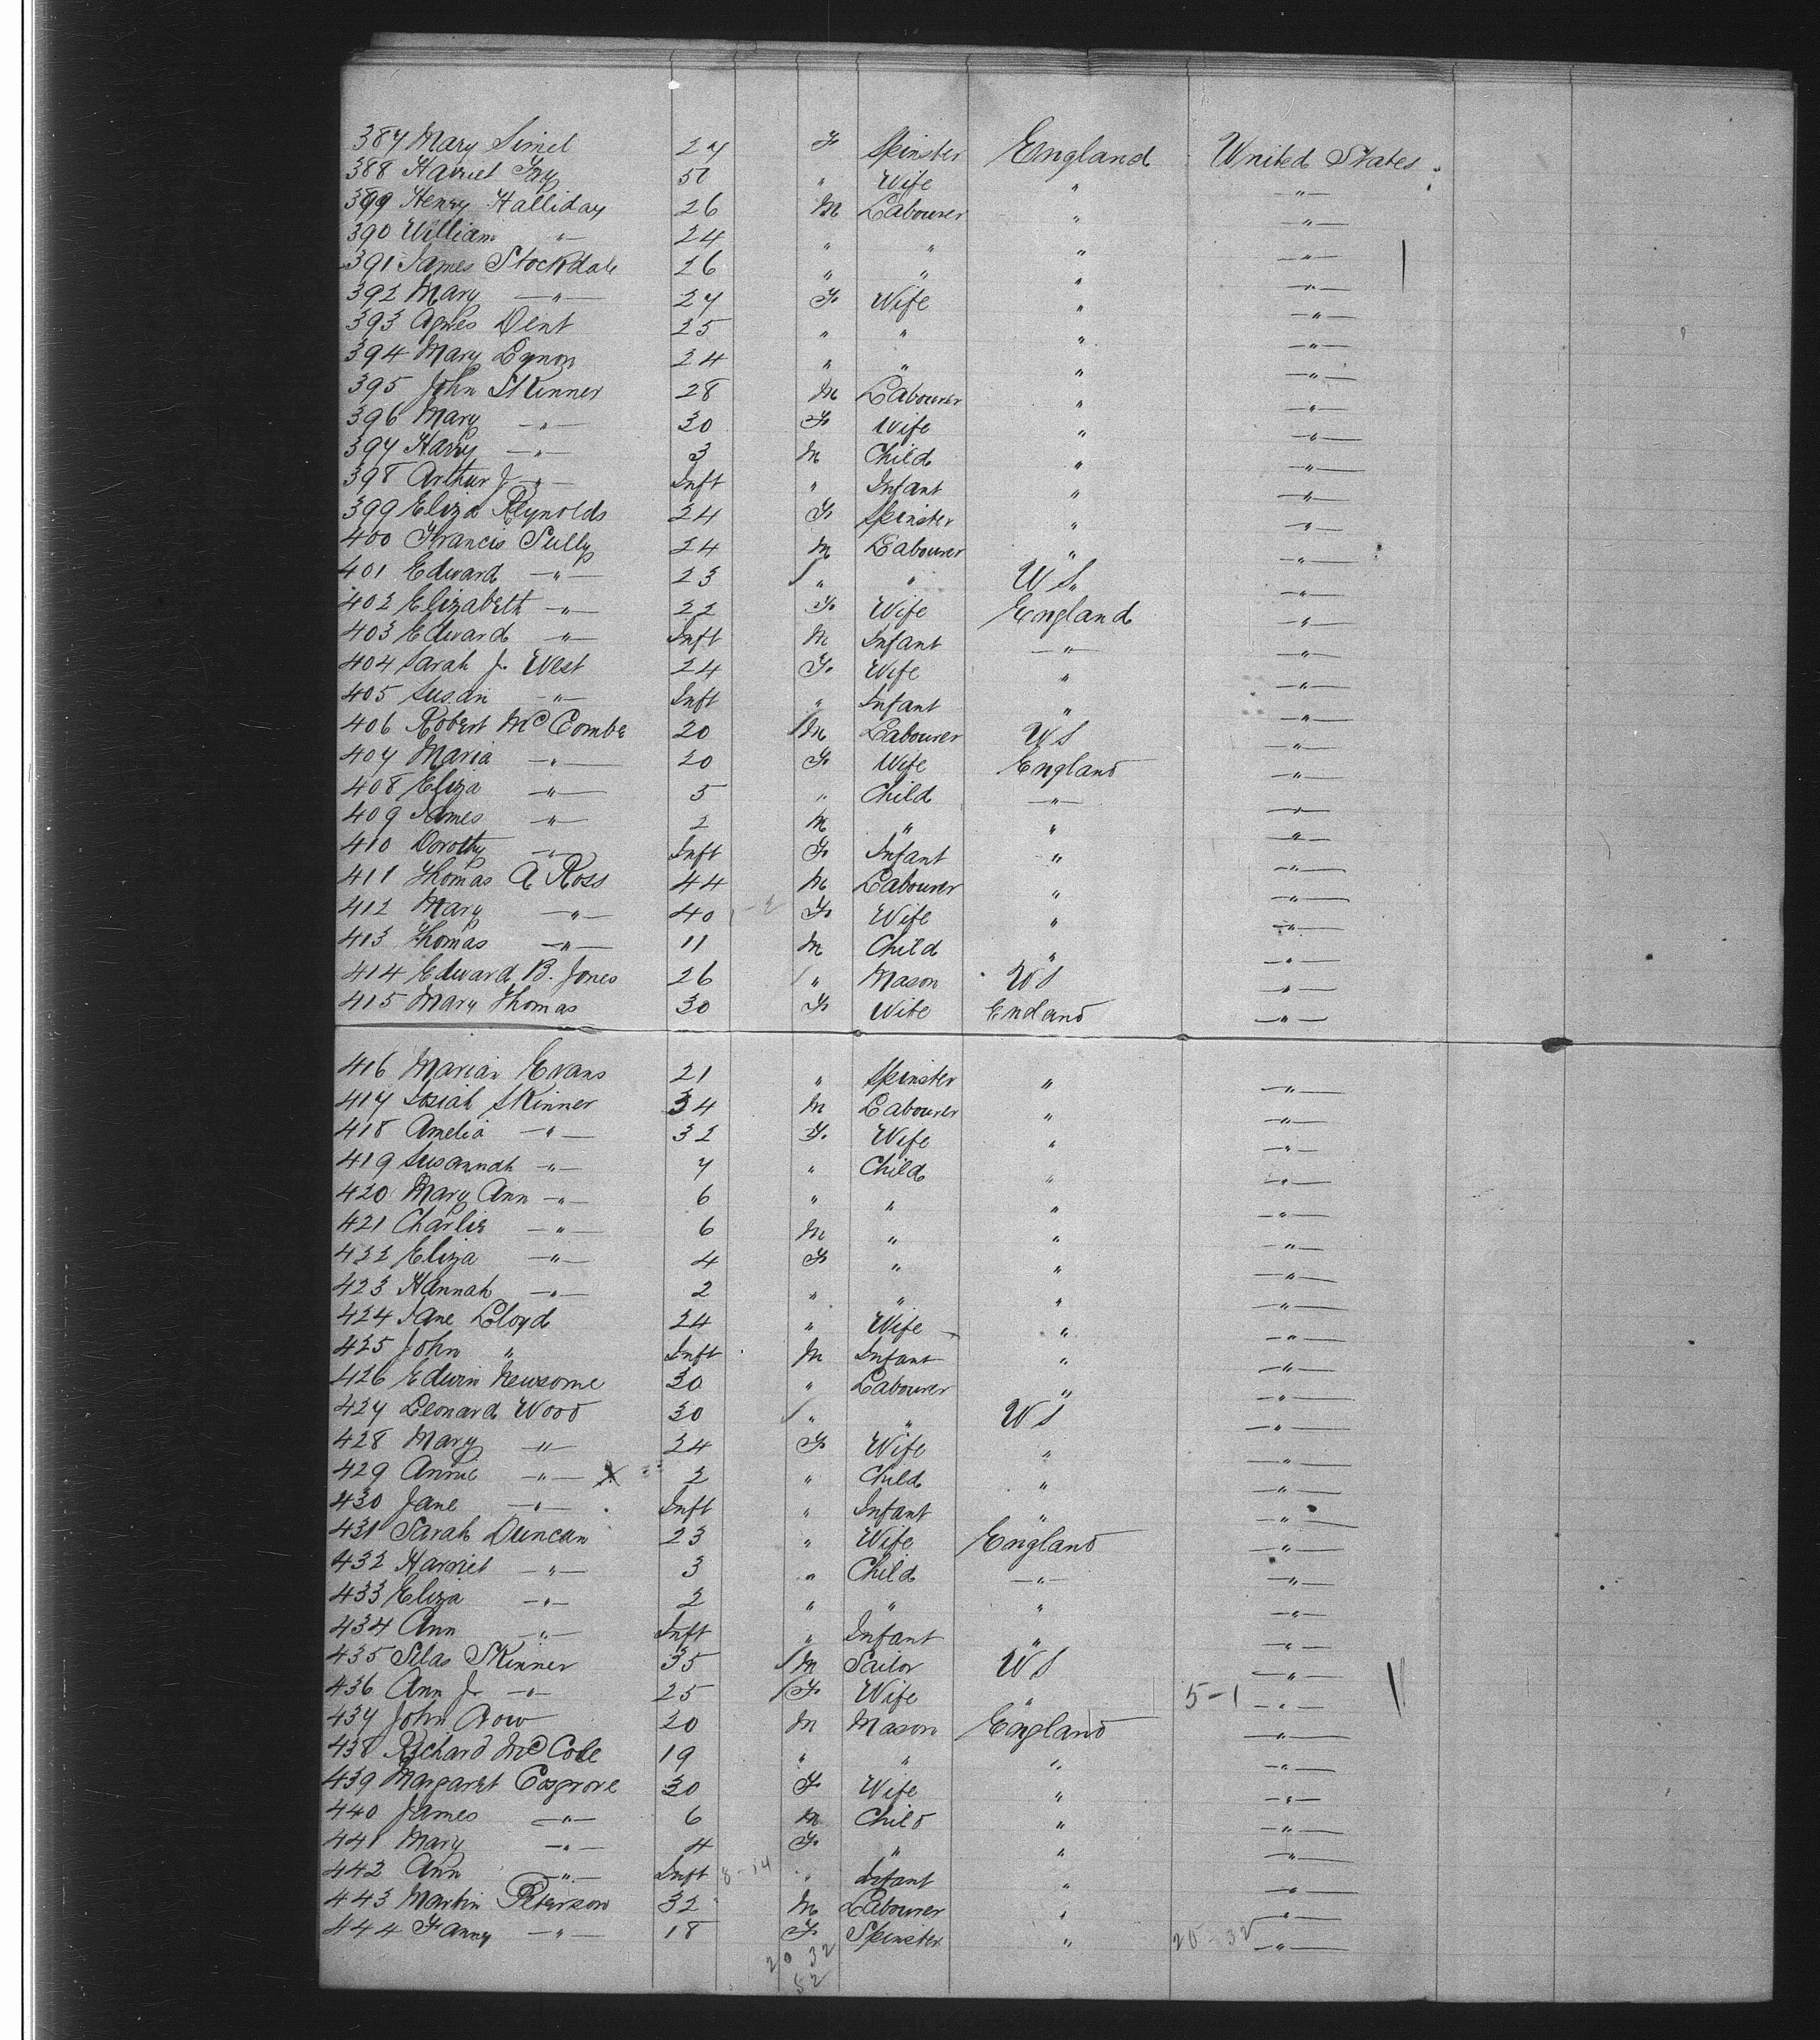 387 Mary Simel 27 F. Spinster England United States
388 Harriet 50 " Wife " —"—
389 Henry Halliday 26 M Labourer " —"—
390 William —"— 24 " " " —"—
391 James Stockdale 26 " " " —"—
392 Mary —"— 27 F. Wife " —"—
393 Agnes Dent 25 " " " —"—
394 Mary Lynon 24 " " " —"—
395 John Skinner 28 M Labourer " —"—
396 Mary —"— 30 F. Wife " —"—
397 Harry —"— 3 M Child " —"—
398 Arthur J —"— Inft " Infant " —"—
399 Eliza Reynolds 24 F. Spinster " —"—
400 Francis Sully 24 M Labourer " —"—
401 Edward —"— 23 / " " US. —"—
402 Elizabeth —"— 22 F. Wife England —"—
403 Edward —"— Inft M Infant —"— —"—
404 Sarah J. West 24 F. Wife " —"—
405 Susan —"— Inft " Infant " —"—
406 Robert McCombe 20 / M Labourer US —"—
407 Maria —"— 20 F. Wife England —"—
408 Eliza —"— 5 " Child —"— —"—
409 James —"— 2 M " " —"—
410 Dorothy —"— Inft F. Infant " —"—
411 Thomas A Ross 44 M Labourer " —"—
412 Mary —"— 40 F. Wife " —"—
413 Thomas —"— 11 M Child " —"—
414 Edward B. Jones 26 / " Mason US —"—
415 Mary Thomas 30 F. Wife England —"—
416 Marian Evans 21 " Spinster " —"—
417 Josiah Skinner 34 M Labourer " —"—
418 Amelia —"— 32 F. Wife " —"—
419 Susannah —"— 7 " Child " —"—
420 Mary Ann —"— 6 " " " —"—
421 Charlie —"— 6 M " " —"—
422 Eliza —"— 4 F. " " —"—
423 Hannah —"— 2 " " " —"—
424 Jane Lloyd 24 " Wife " —"—
425 John " Inft M Infant " —"—
426 Edwin Newsome 30 " Labourer " —"—
427 Leonard Wood 30 / " " US —"—
428 Mary —"— 24 F. Wife " —"—
429 Annie —"— X 2 " Child " —"—
430 Jane —"— Inft " Infant " —"—
431 Sarah Duncan 23 " Wife England —"—
432 Harriet —"— 3 " Child —"— —"—
433 Eliza —"— 2 " " " —"—
434 Ann —"— Inft " Infant " —"—
435 Silas Skinner 35 / M Sailor US —"—
436 Ann J —"— 25 / F. Wife " 5-1 —"—
437 John 20 M Mason England —"—
438 Richard McCole 19 " " " —"—
439 Margaret Cosgrove 30 F. Wife " —"—
440 James —"— 6 M Child " —"—
441 Mary —"— 4 F. " " —"—
442 Ann —"— Inft 8-14 " Infant " —"—
443 Martin Peterson 32 M Labourer " —"—
444 Fanny —"— 18 F. Spinster " 20-32 —"—
20 32
52